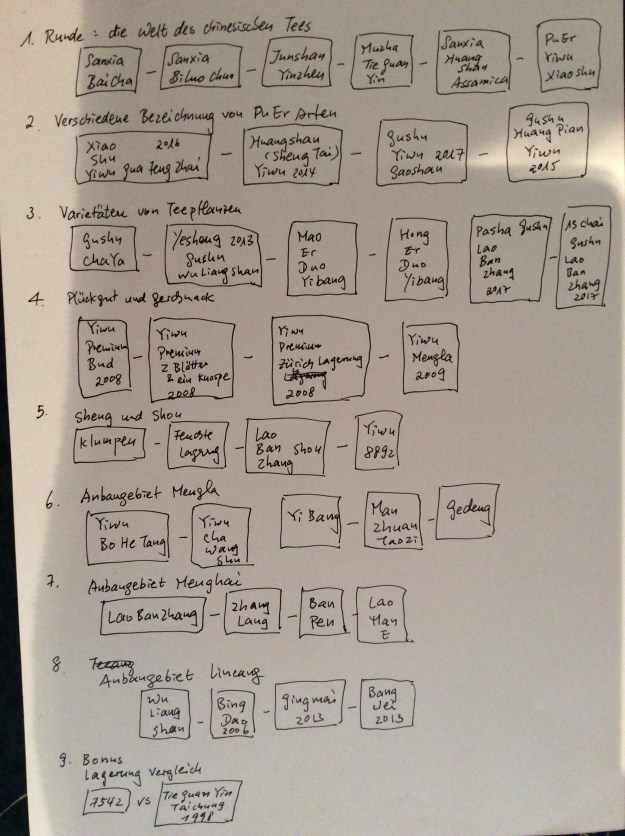 1. Runde : die Welt des chinesischen Tees
Sanxia
Baicha
Sanxia
Biluo chun
Junshan
Yinzhen
Muzha
Tie guan
Yin
Sanxia
Huang
Shan
Assamica
PuEr
Yiwu
Xiaoshu
2. Verschiedene Bezeichnung von PuEr Arten
Xiao 2016
Shu
Yiwu gua feng zhai
Huangshan
(sheng Tai)
Yiwu 2014
gushu
Yiwu 2017
gaoshan
gushu
Huang Pian
Yiwu
2015
3. Varietäten von Teepflanzen
gushu
chaYa
Yesheng 2013
gushu
wuLiangshan
Mao
Er
Duo
Yibang
Hong
Er
Duo
Yibang
Pasha gushu
Lao
Ban
Zhang
2017
13 chai
gushu
Lao
Ban
Zhang
2017
4. Plückgut und geschmack
Yiwu
Premium
Bud
2008
Yiwu
Premium
2 Blätter
& ein Knospe
2008
Yiwu
Premium
Zürich Lagerung
2008
Yiwu
Mengla
2009
5. Sheng und Shou
Klumpen
Feuchte
Lagerung
Lao
Ban Shou
Zhang
Yiwu
8892
6. Anbaugebiet Mengla
Yiwu
Bo He Tang
Yiwu
cha
wang
Shu
Yi Bang
Man
Zhuan
Taozi
Gedeng
7. Anbaugebiet Menghai
LaoBanZhang
Zhang
Lang
Ban
Pen
Lao
Man
E
8
Anbaugebiet Lincang
Wu
Liang
Shan
Bing
Dao
2006
gingmai
2013
Bang
Wei
2013
9. Bonus
Lagerung vergleich
7542 vs Tie guan Yin
Taichung
1998